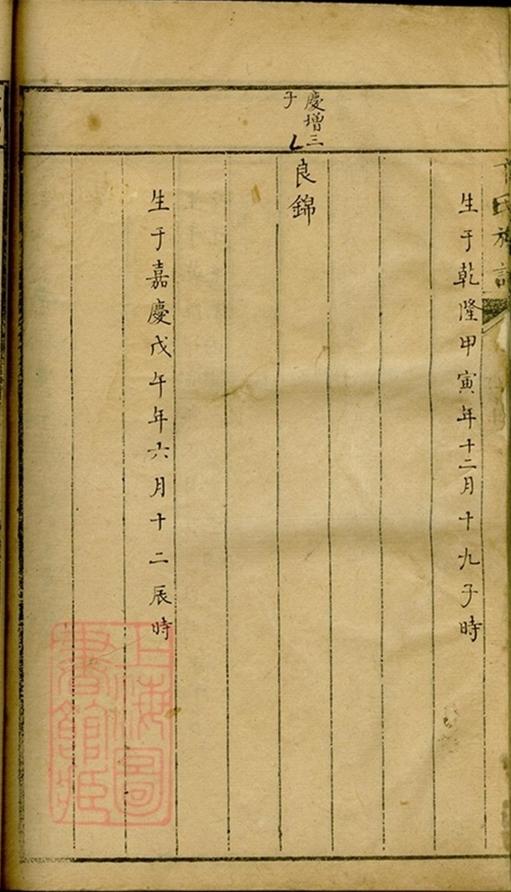 氏族譜
生于乾隆甲寅年十二月十九子時
慶增三
子
良錦
生于嘉慶戊午年六月十二辰時
上海圖
書館藏